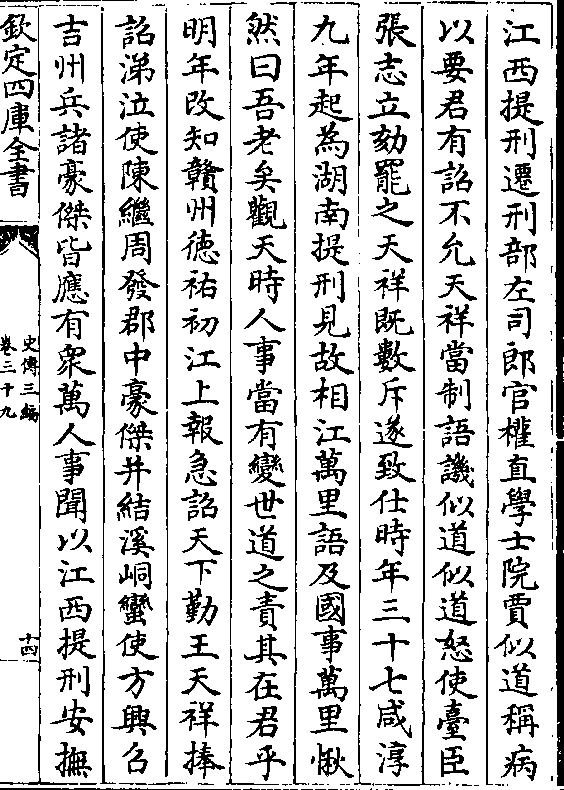 江西提刑遷刑部左司郎官權直學士院賈似道稱病
以要君有詔不允天祥當制語譏似道似道怒使臺臣
張志立劾罷之天祥既數斥遂致仕時年三十七咸淳
九年起為湖南提刑見故相江萬里語及國事萬里愀
然曰吾老矣觀天時人事當有變世道之責其在君乎
明年改知贛州德祐初江上報急詔天下勤王天祥捧
詔涕泣使陳繼周發郡中豪傑并結溪峒蠻使方興召
吉州兵諸豪傑皆應有衆萬人事聞以江西提刑安撫
欽定四庫全書
史傳三編
卷三十九
十四